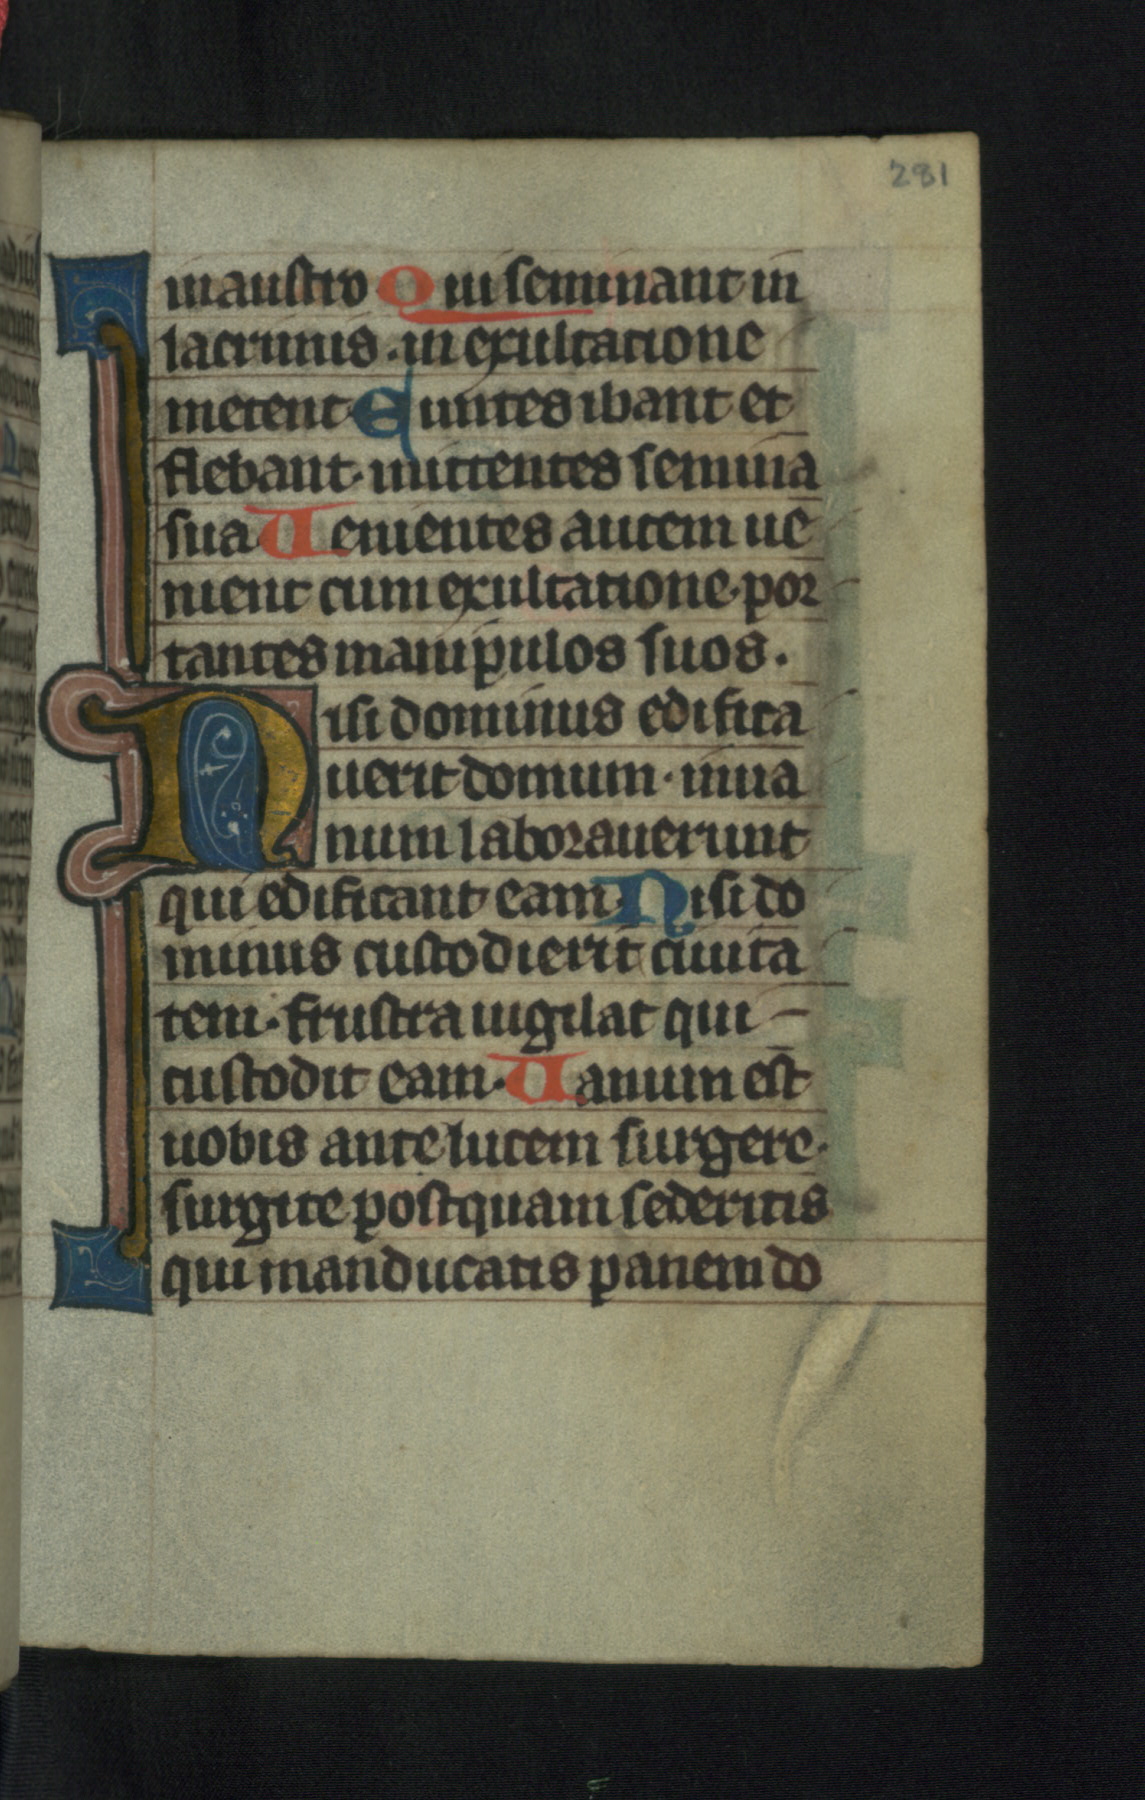 281
in austro Qui seminant in
lacrimis · in exultatione
metent Euntes ibant et
flebant · mittentes semina
sua Uenientes autem ue
nient cum exultatione · por
tantes manipulos suos ·
Nisi dominus edifica
uerit domum · inua
num laborauerunt
qui edificant eam Nisi do
minus custodierit ciuita
tem · frustra uigilat qui
custodit eam · Uanum est
uobis ante lucem surgere ·
surgite postquam sederitis
qui manducatis panem do